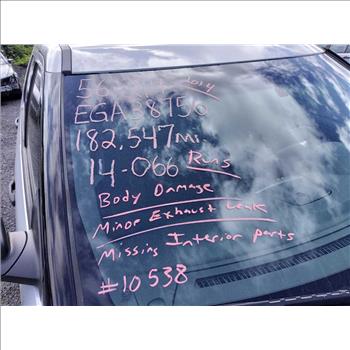 EGA38750
182,547 mi.
14-066 Runs
Body Damage
Minor Exhaust Leak
Missing Interior parts
#10538